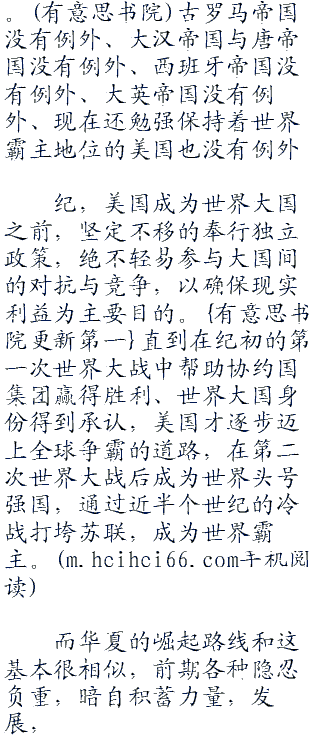 。(有意思书院)古罗马帝国
没有例外、大汉帝国与唐帝
国没有例外、西班牙帝国没
有例外、大英帝国没有例
外、现在还勉强保持着世界
霸主地位的美国也没有例外
纪，美国成为世界大国
之前，坚定不移的奉行独立
政策，绝不轻易参与大国间
的对抗与竞争，以确保现实
利益为主要目的。{有意思书
院更新第一}直到在纪初的第
一次世界大战中帮助协约国
集团赢得胜利、世界大国身
份得到承认，美国才逐步迈
上全球争霸的道路，在第二
次世界大战后成为世界头号
强国，通过近半个世纪的冷
战打垮苏联，成为世界霸
主。(m.hcihci66.com手机阅
读)
而华夏的崛起路线和这
基本很相似，前期各种隐忍
负重，暗自积蓄力量，发
展，